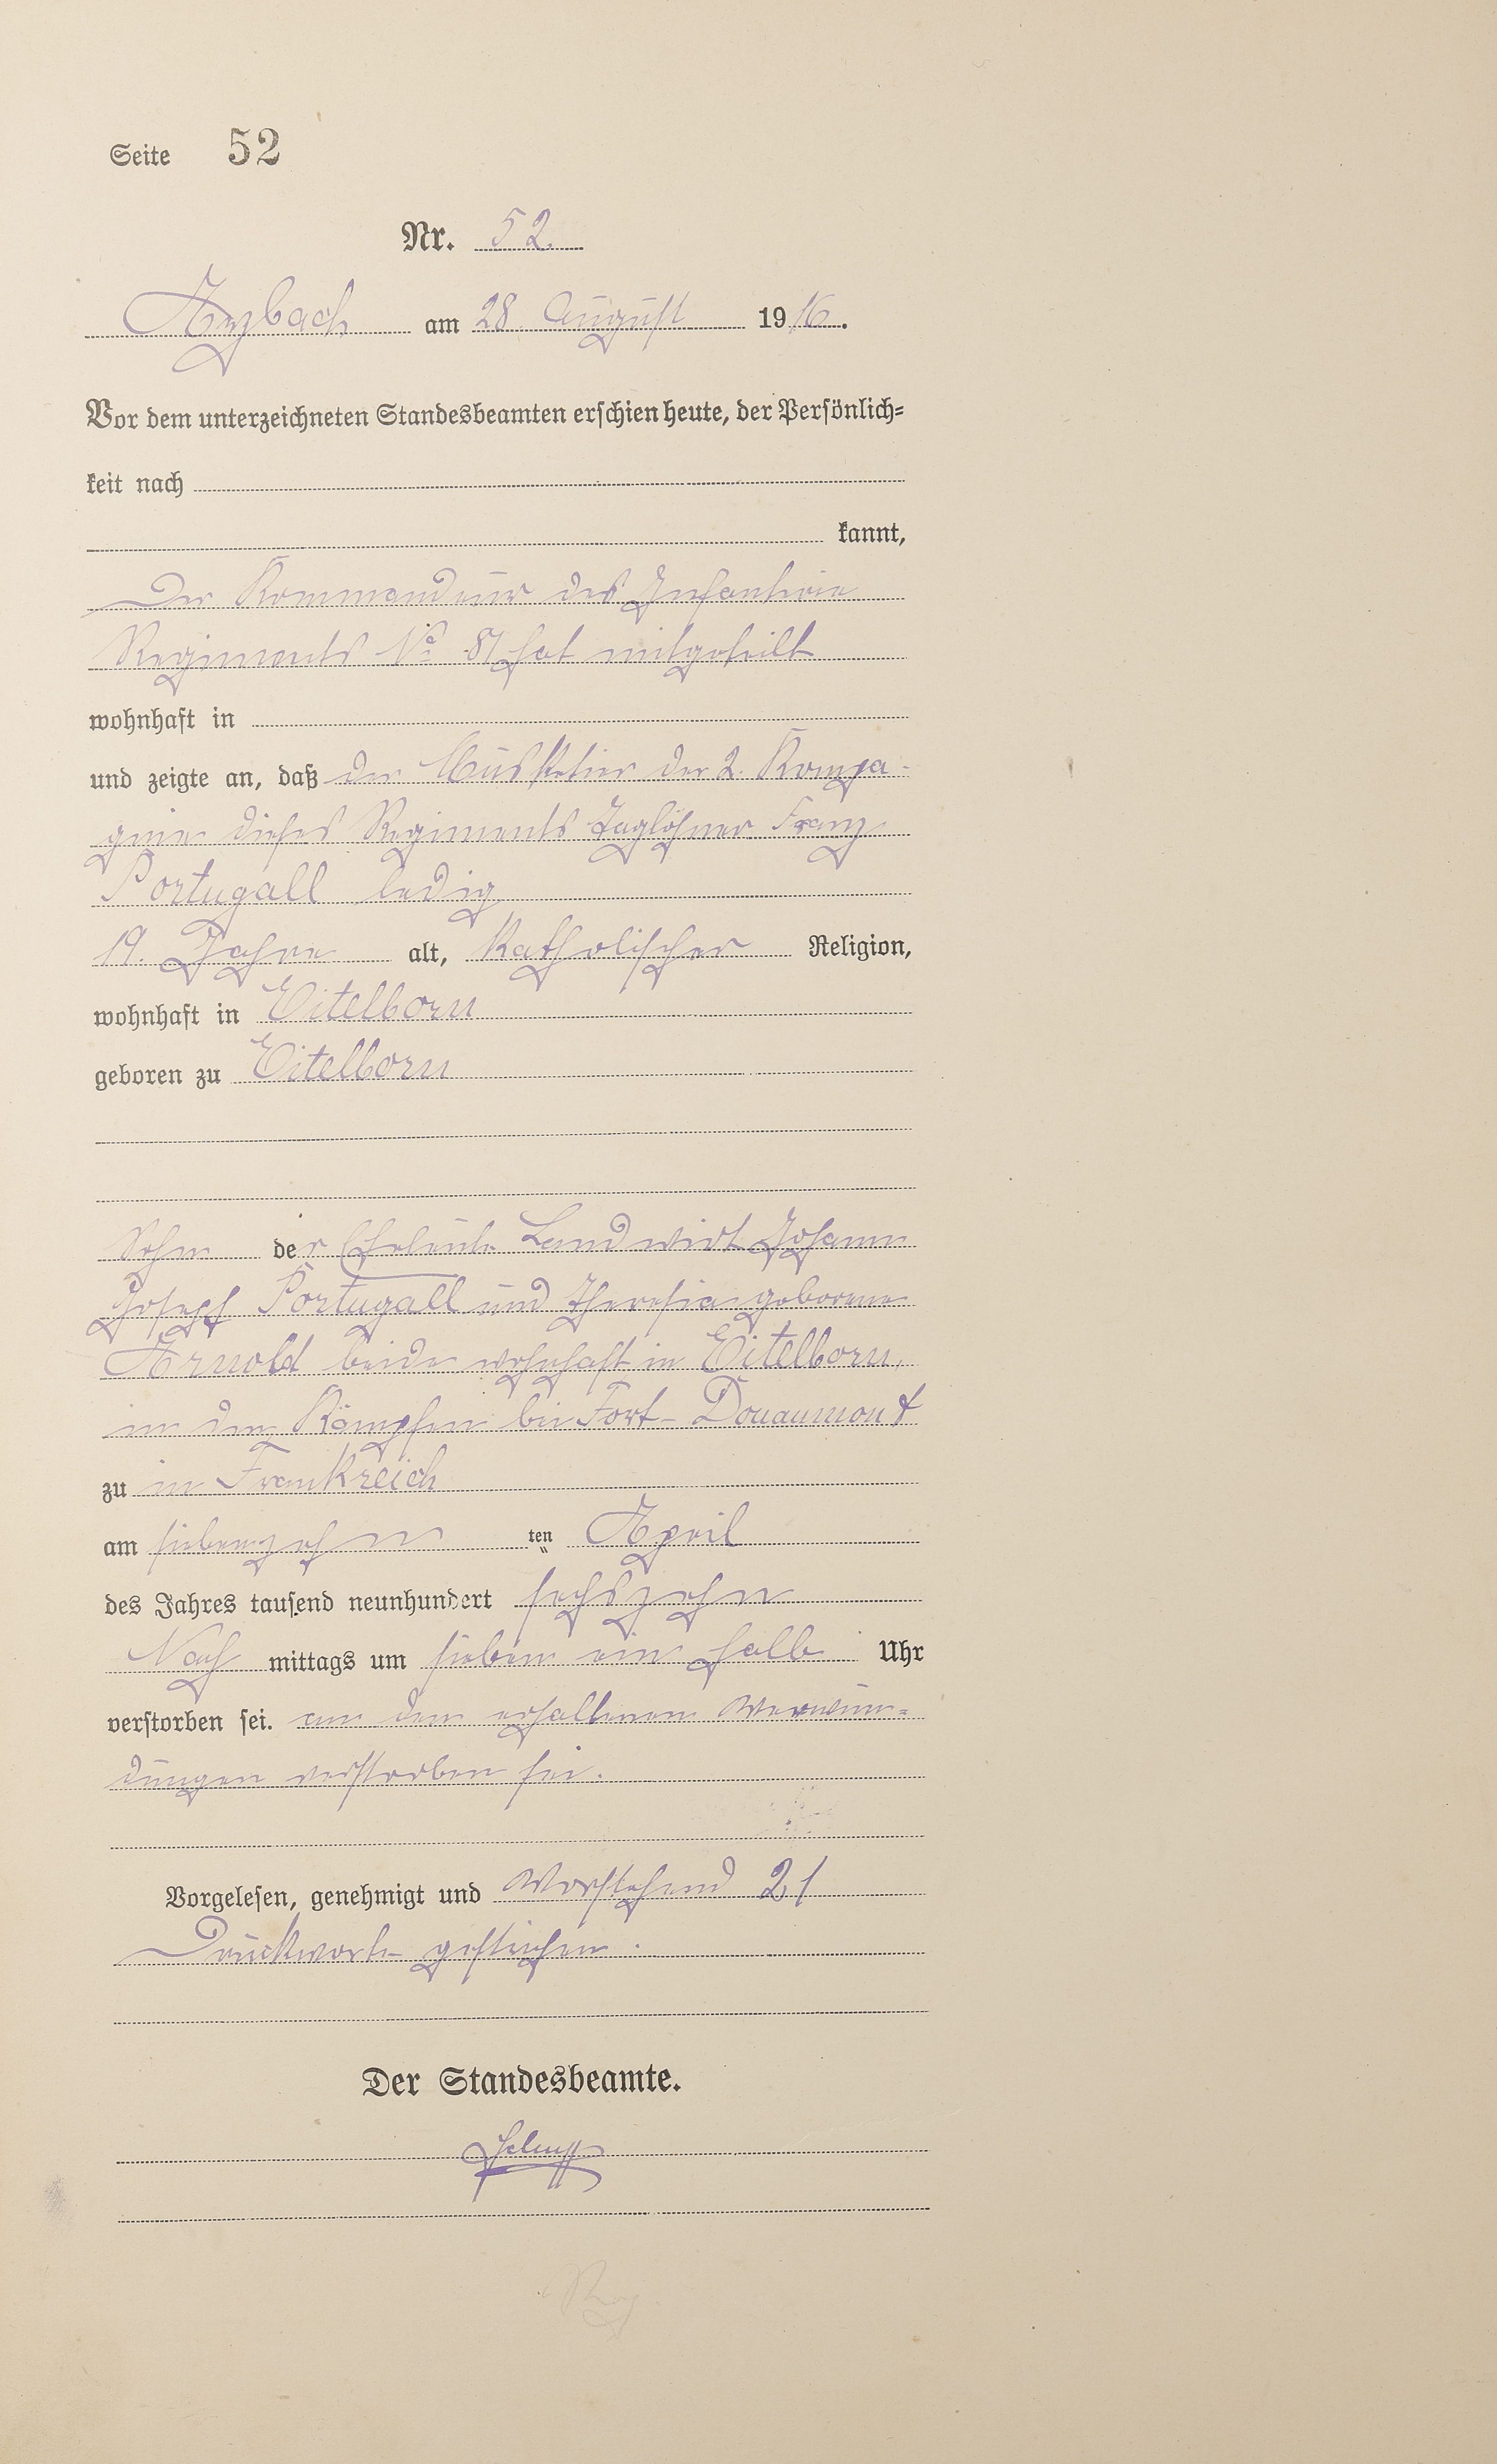 Seite 52
Nr. 52.
Arzbach am 28. August 1916.
Vor dem unterzeichneten Standesbeamten erschien heute, der Persönlich=
keit nach
kannt,
Der Kommandeur des Infanterie
Regiments No 81 hat mitgeteilt
wohnhaft in
und zeigte an, daß der Musketier der 2. Kompa-
gnie dieses Regiments Taglöhner Franz
Portugall ledig
19. Jahre alt, Katholischer Religion,
wohnhaft in Eitelborn
geboren zu Eitelborn
Sohn der Eheleute Landwirt Johann
Joseph Portugall und Theresia geborene
Arnold beide wohnhaft in Eitelborn,
in den Kämpfen bei Fort-Douaumont
zu in Frankreich
am siebenzehn ten April
des Jahres tausend neunhundert sechszehn
Nach mittags um sieben ein halb Uhr
verstorben sei. an den erhaltenen Verwun=
dungen verstorben sei.
Vorgelesen, genehmigt und Vorstehend 21
Druckworte gestrichen.
Der Standesbeamte.